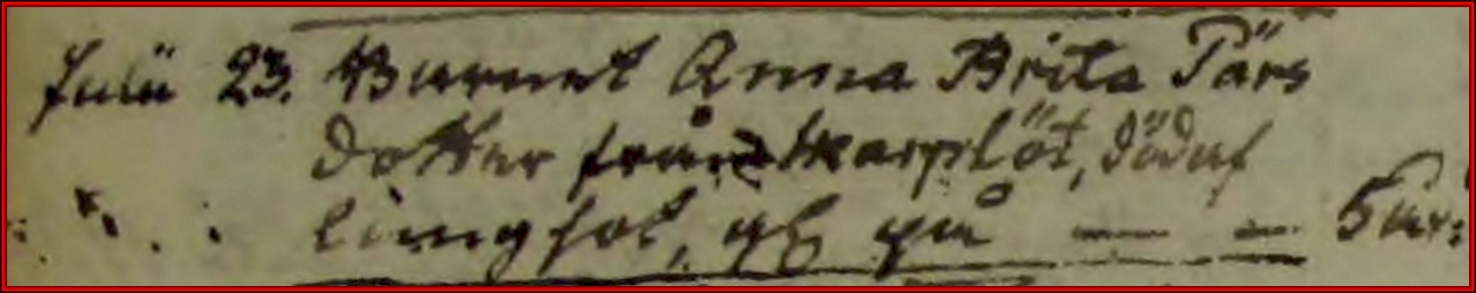 Julii 23. Barnet Anna Brita Pärs
dotter från Skarplöt, död af
lungsot, gl. på — — 5 år: